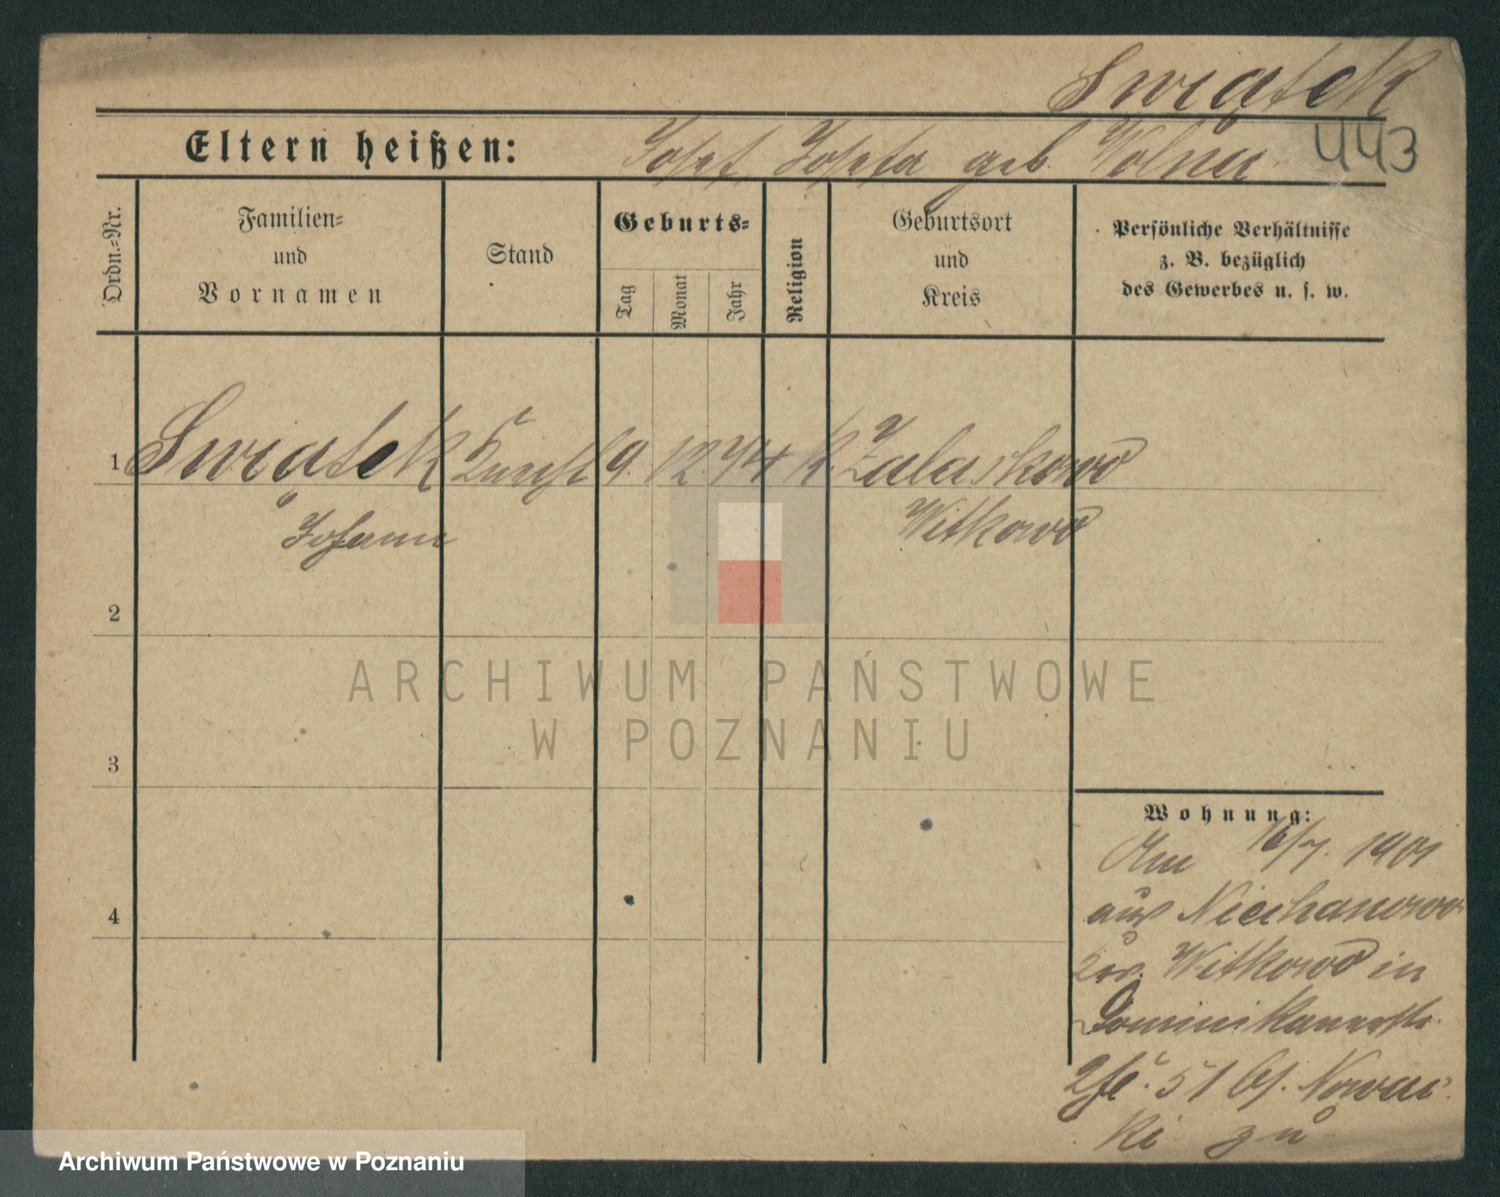 Swiątek
443
Eltern heißen: Josef, Josefa geb. Wolna
Ordn.=Nr.
Familien=
und
Vornamen
Stand
Geburts=
Tag
Monat
Jahr
Religion
Geburtsort
und
Kreis
Persönliche Verhältnisse
z. B. bezüglich
des Gewerbes u. s. w.
1 Swiątek 9. 12. K. Zalaskowo
Johann Witkowo
2
ARCHIWUM PAŃSTWOWE
W POZNANIU
3
Wohnung:
Am 16/7. 1901
4
aus Niechanowo
Kr. Witkowo in
Dominikanerstr.
51 bs. Nowac
ki zu
Archiwum Państwowe w Poznaniu